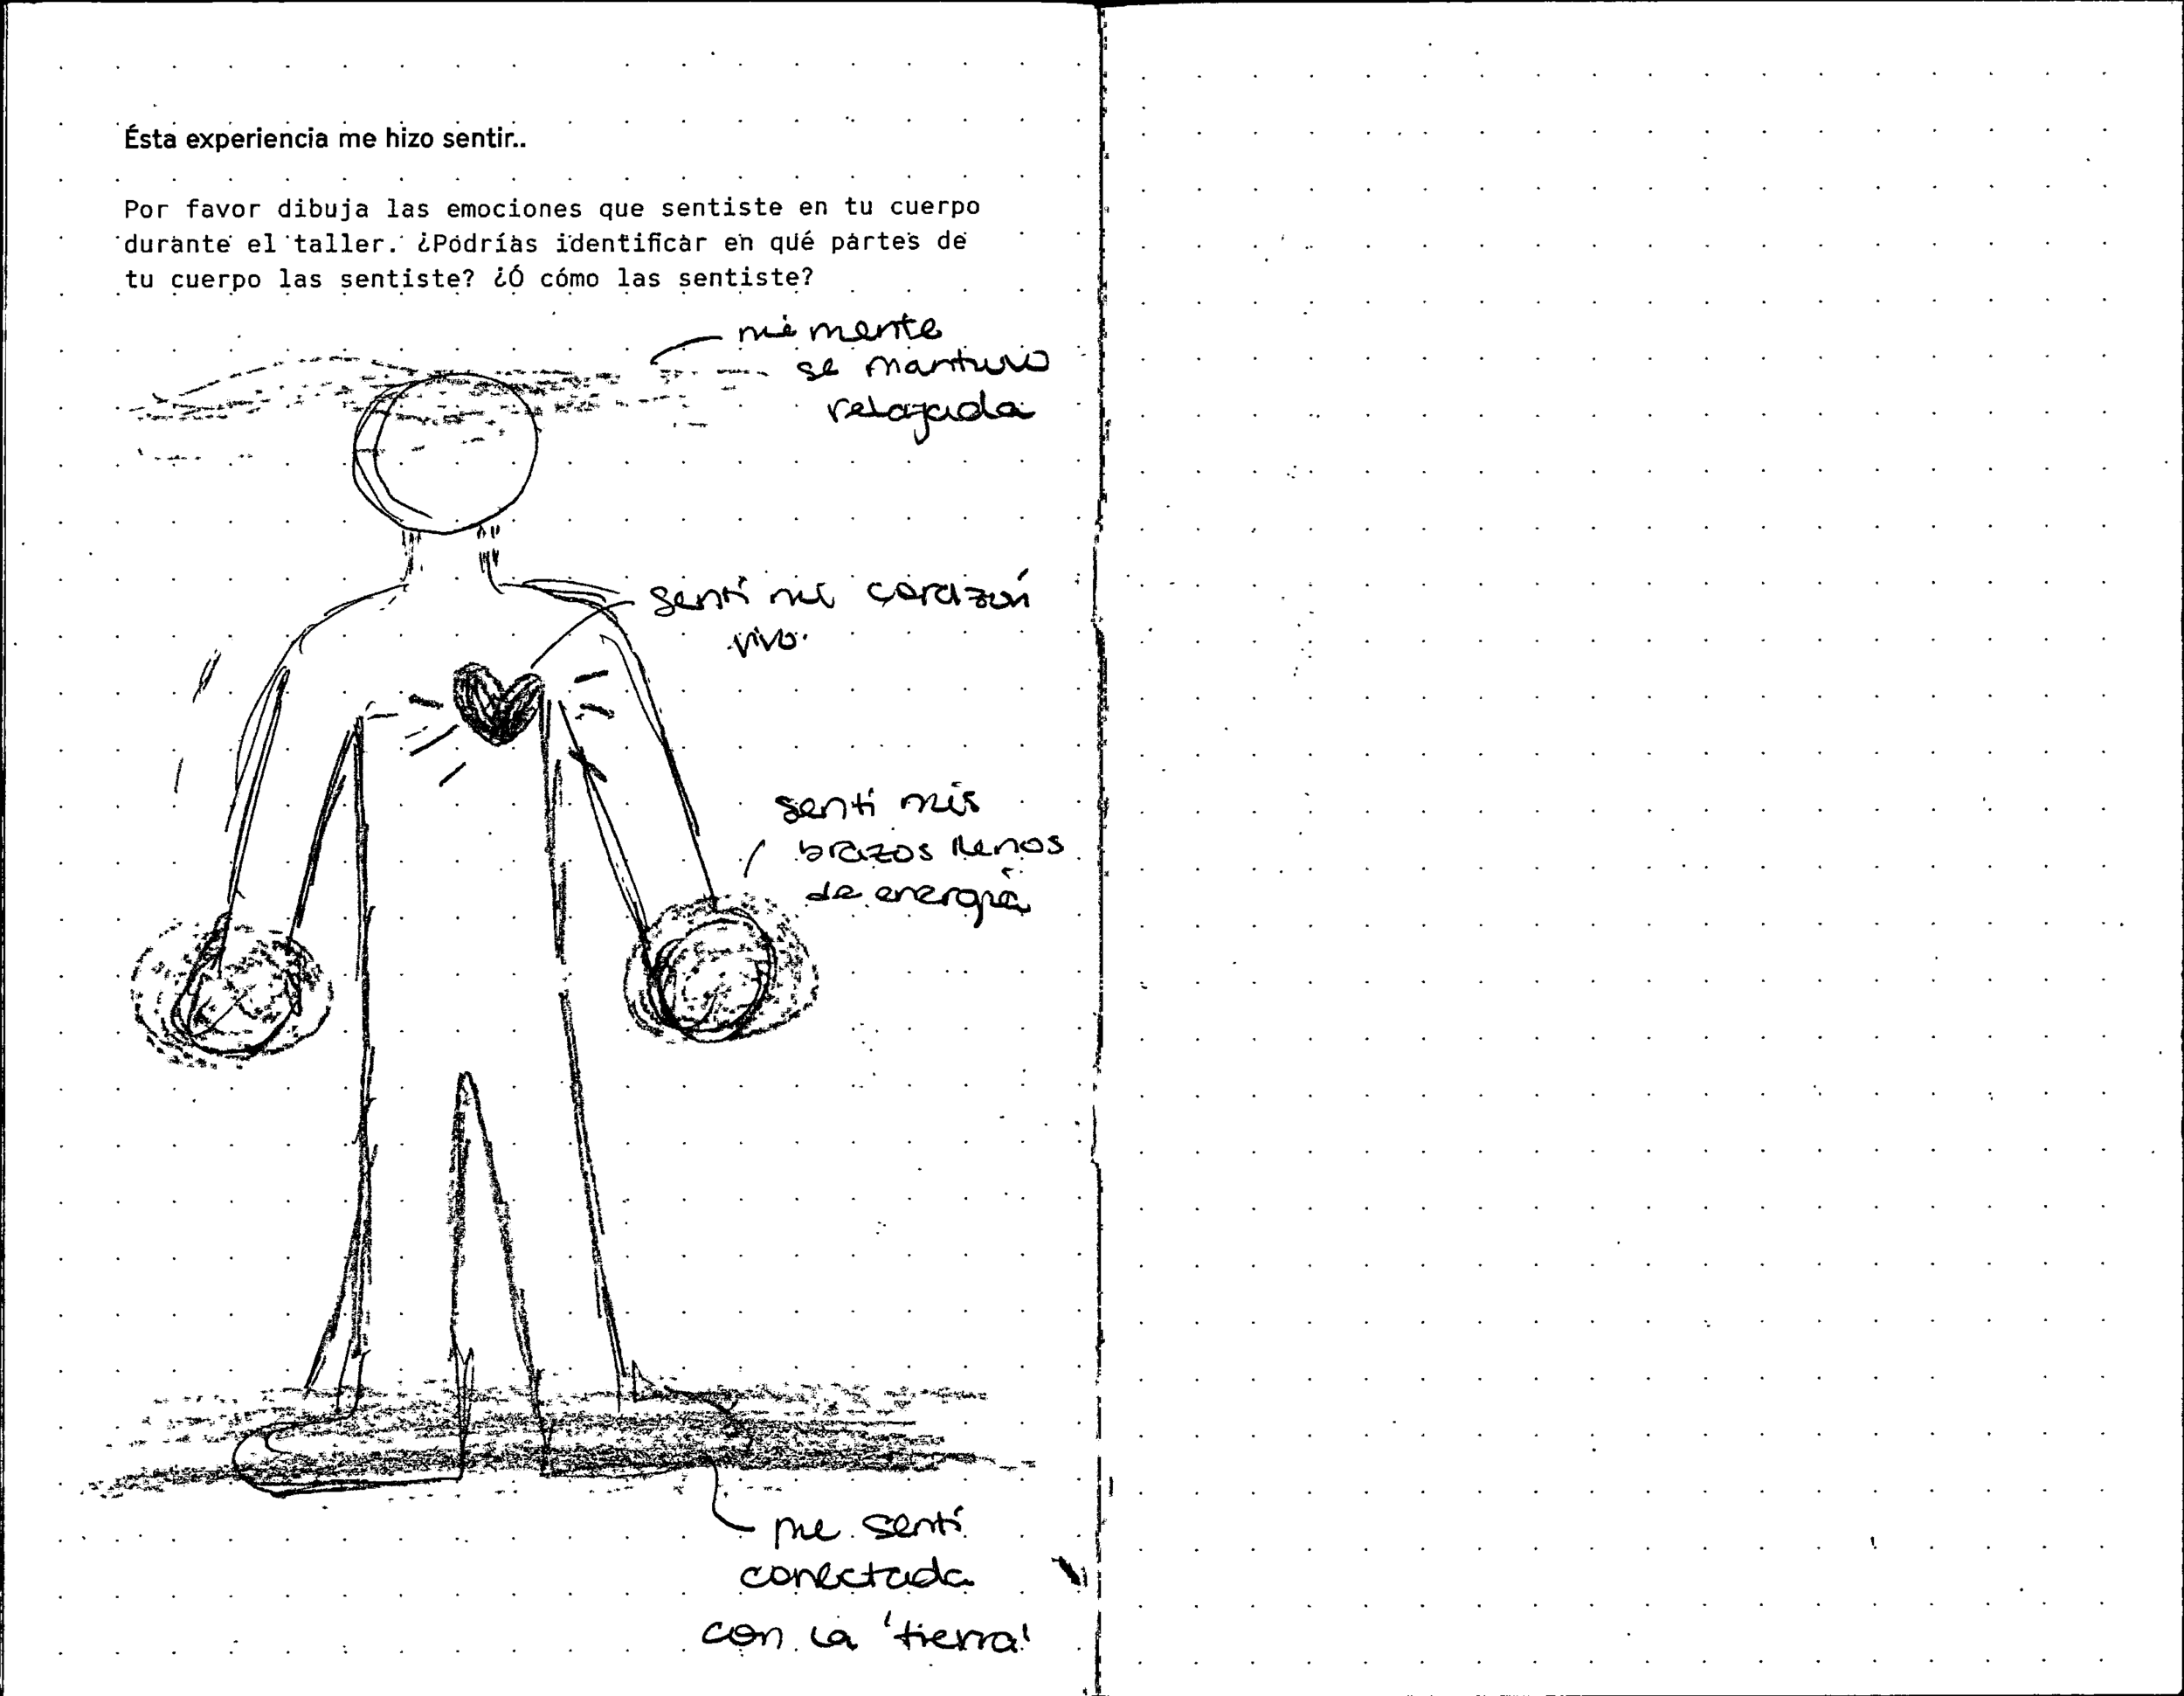 Ésta experiencia me hizo sentir..
Por favor dibuja las emociones que sentiste en tu cuerpo
durante el taller. ¿Podrías identificar en qué partes de
tu cuerpo las sentiste? ¿Ó cómo las sentiste?
mi mente
se mantuvo
relajada
sentí mi corazón
vivo.
sentí mis
brazos llenos
de energía
me sentí
conectada
con la 'tierra'